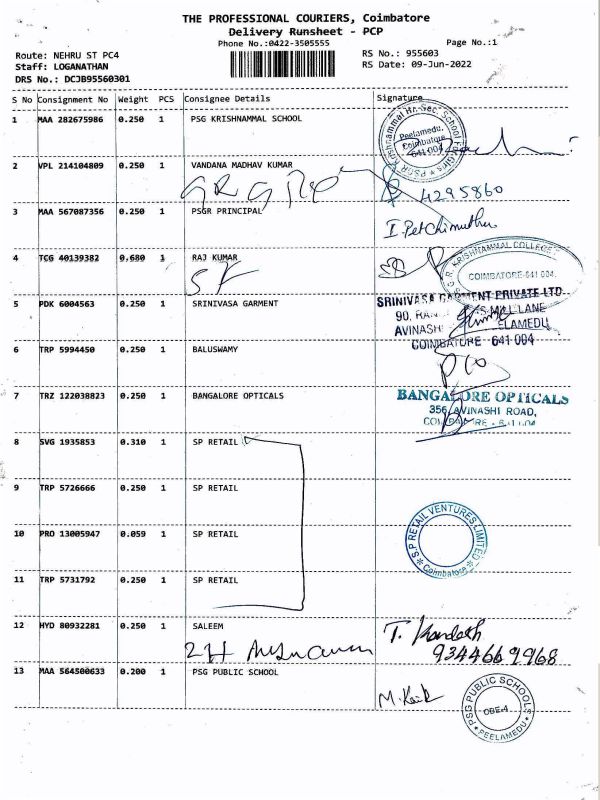 THE PROFESSIONAL COURIERS, Coimbatore
Delivery Runsheet - PCP
Phone No.:0422-3505555 Page No.:1
Route: NEHRU ST PC4 RS No.: 955603
Staff: LOGANATHAN RS Date: 09-Jun-2022
DRS No.: DCJB95560301
S No Consignment No Weight PCS Consignee Details Signature
1 MAA 282675986 0.250 1 PSG KRISHNAMMAL SCHOOL
Peelamedu,
Coimbatore
641 004
2 VPL 214104809 0.250 1 VANDANA MADHAV KUMAR
4295860
3 MAA 567087356 0.250 1 PSGR PRINCIPAL
4 TCG 40139382 0.680 1 RAJ KUMAR
KRISHNAMMAL COLLEGE
COIMBATORE-641 004.
5 PDK 6004563 0.250 1 SRINIVASA GARMENT
SRINIVASA GARMENT PRIVATE LTD
90, MILL LANE
AVINASHI
COIMBATORE - 641 004
6 TRP 5994450 0.250 1 BALUSWAMY
7 TRZ 122038823 0.250 1 BANGALORE OPTICALS
BANGALORE OPTICALS
356, AVINASHI ROAD,
8 SVG 1935853 0.310 1 SP RETAIL
9 TRP 5726666 0.250 1 SP RETAIL
10 PRO 13005947 0.059 1 SP RETAIL
S.P RETAIL VENTURES LIMITED
Coimbatore
11 TRP 5731792 0.250 1 SP RETAIL
12 HYD 80932281 0.250 1 SALEEM
9344669968
13 MAA 564500633 0.200 1 PSG PUBLIC SCHOOL
PSG PUBLIC SCHOOLS
PEELAMEDU